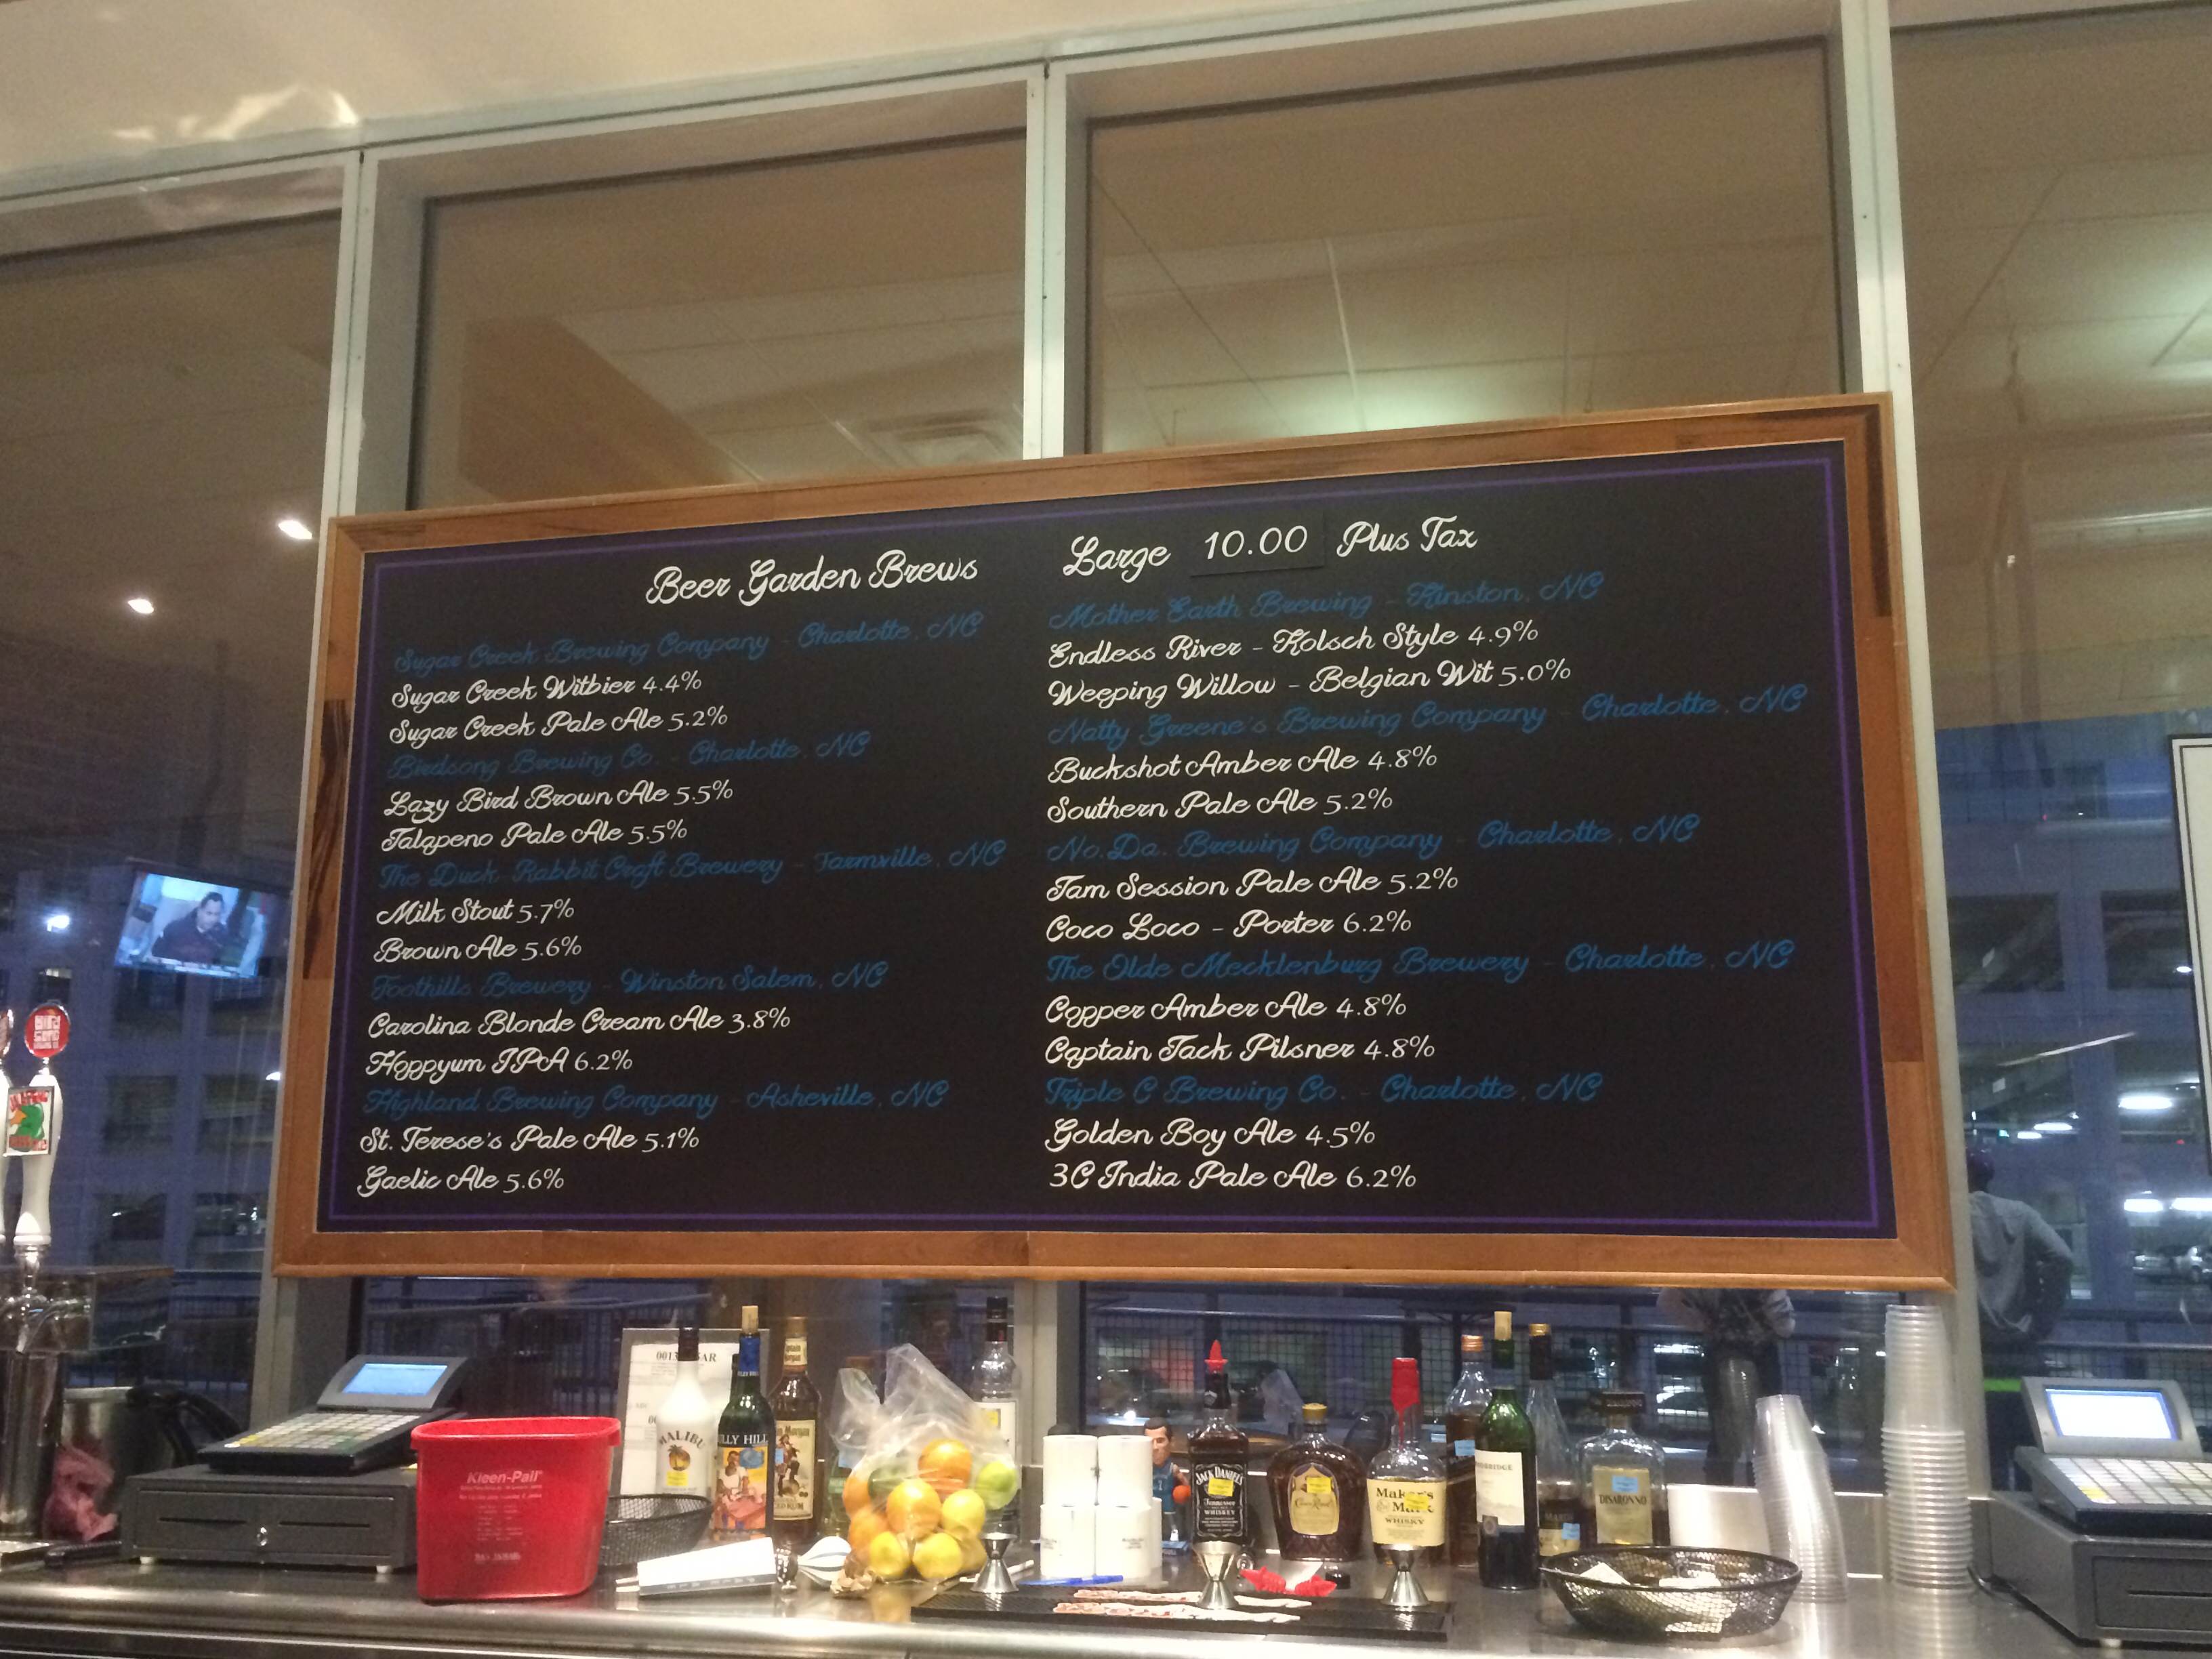 Beer Garden Brews
Sugar Creek Brewing Company - Charlotte, NC
Sugar Creek Witbier 4.4%
Sugar Creek Pale Ale 5.2%
Birdsong Brewing Co. - Charlotte, NC
Lazy Bird Brown Ale 5.5%
Jalapeno Pale Ale 5.5%
The Duck-Rabbit Craft Brewery - Farmville, NC
Milk Stout 5.7%
Brown Ale 5.6%
Foothills Brewery - Winston Salem, NC
Carolina Blonde Cream Ale 3.8%
Hoppyum IPA 6.2%
Highland Brewing Company - Asheville, NC
St. Terese's Pale Ale 5.1%
Gaelic Ale 5.6%
Large 10.00 Plus Tax
Mother Earth Brewing - Kinston, NC
Endless River - Kolsch Style 4.9%
Weeping Willow - Belgian Wit 5.0%
Natty Greene's Brewing Company - Charlotte, NC
Buckshot Amber Ale 4.8%
Southern Pale Ale 5.2%
No.Da. Brewing Company - Charlotte, NC
Jam Session Pale Ale 5.2%
Coco Loco - Porter 6.2%
The Olde Mecklenburg Brewery - Charlotte, NC
Copper Amber Ale 4.8%
Captain Jack Pilsner 4.8%
Triple C Brewing Co. - Charlotte, NC
Golden Boy Ale 4.5%
3C India Pale Ale 6.2%
Kleen-Pail
MALIBU
LLY HILL
RUM
JACK DANIEL'S
Tennessee
WHISKEY
Crown Royal
Maker's
Mark
WHISKY
DISARONNO